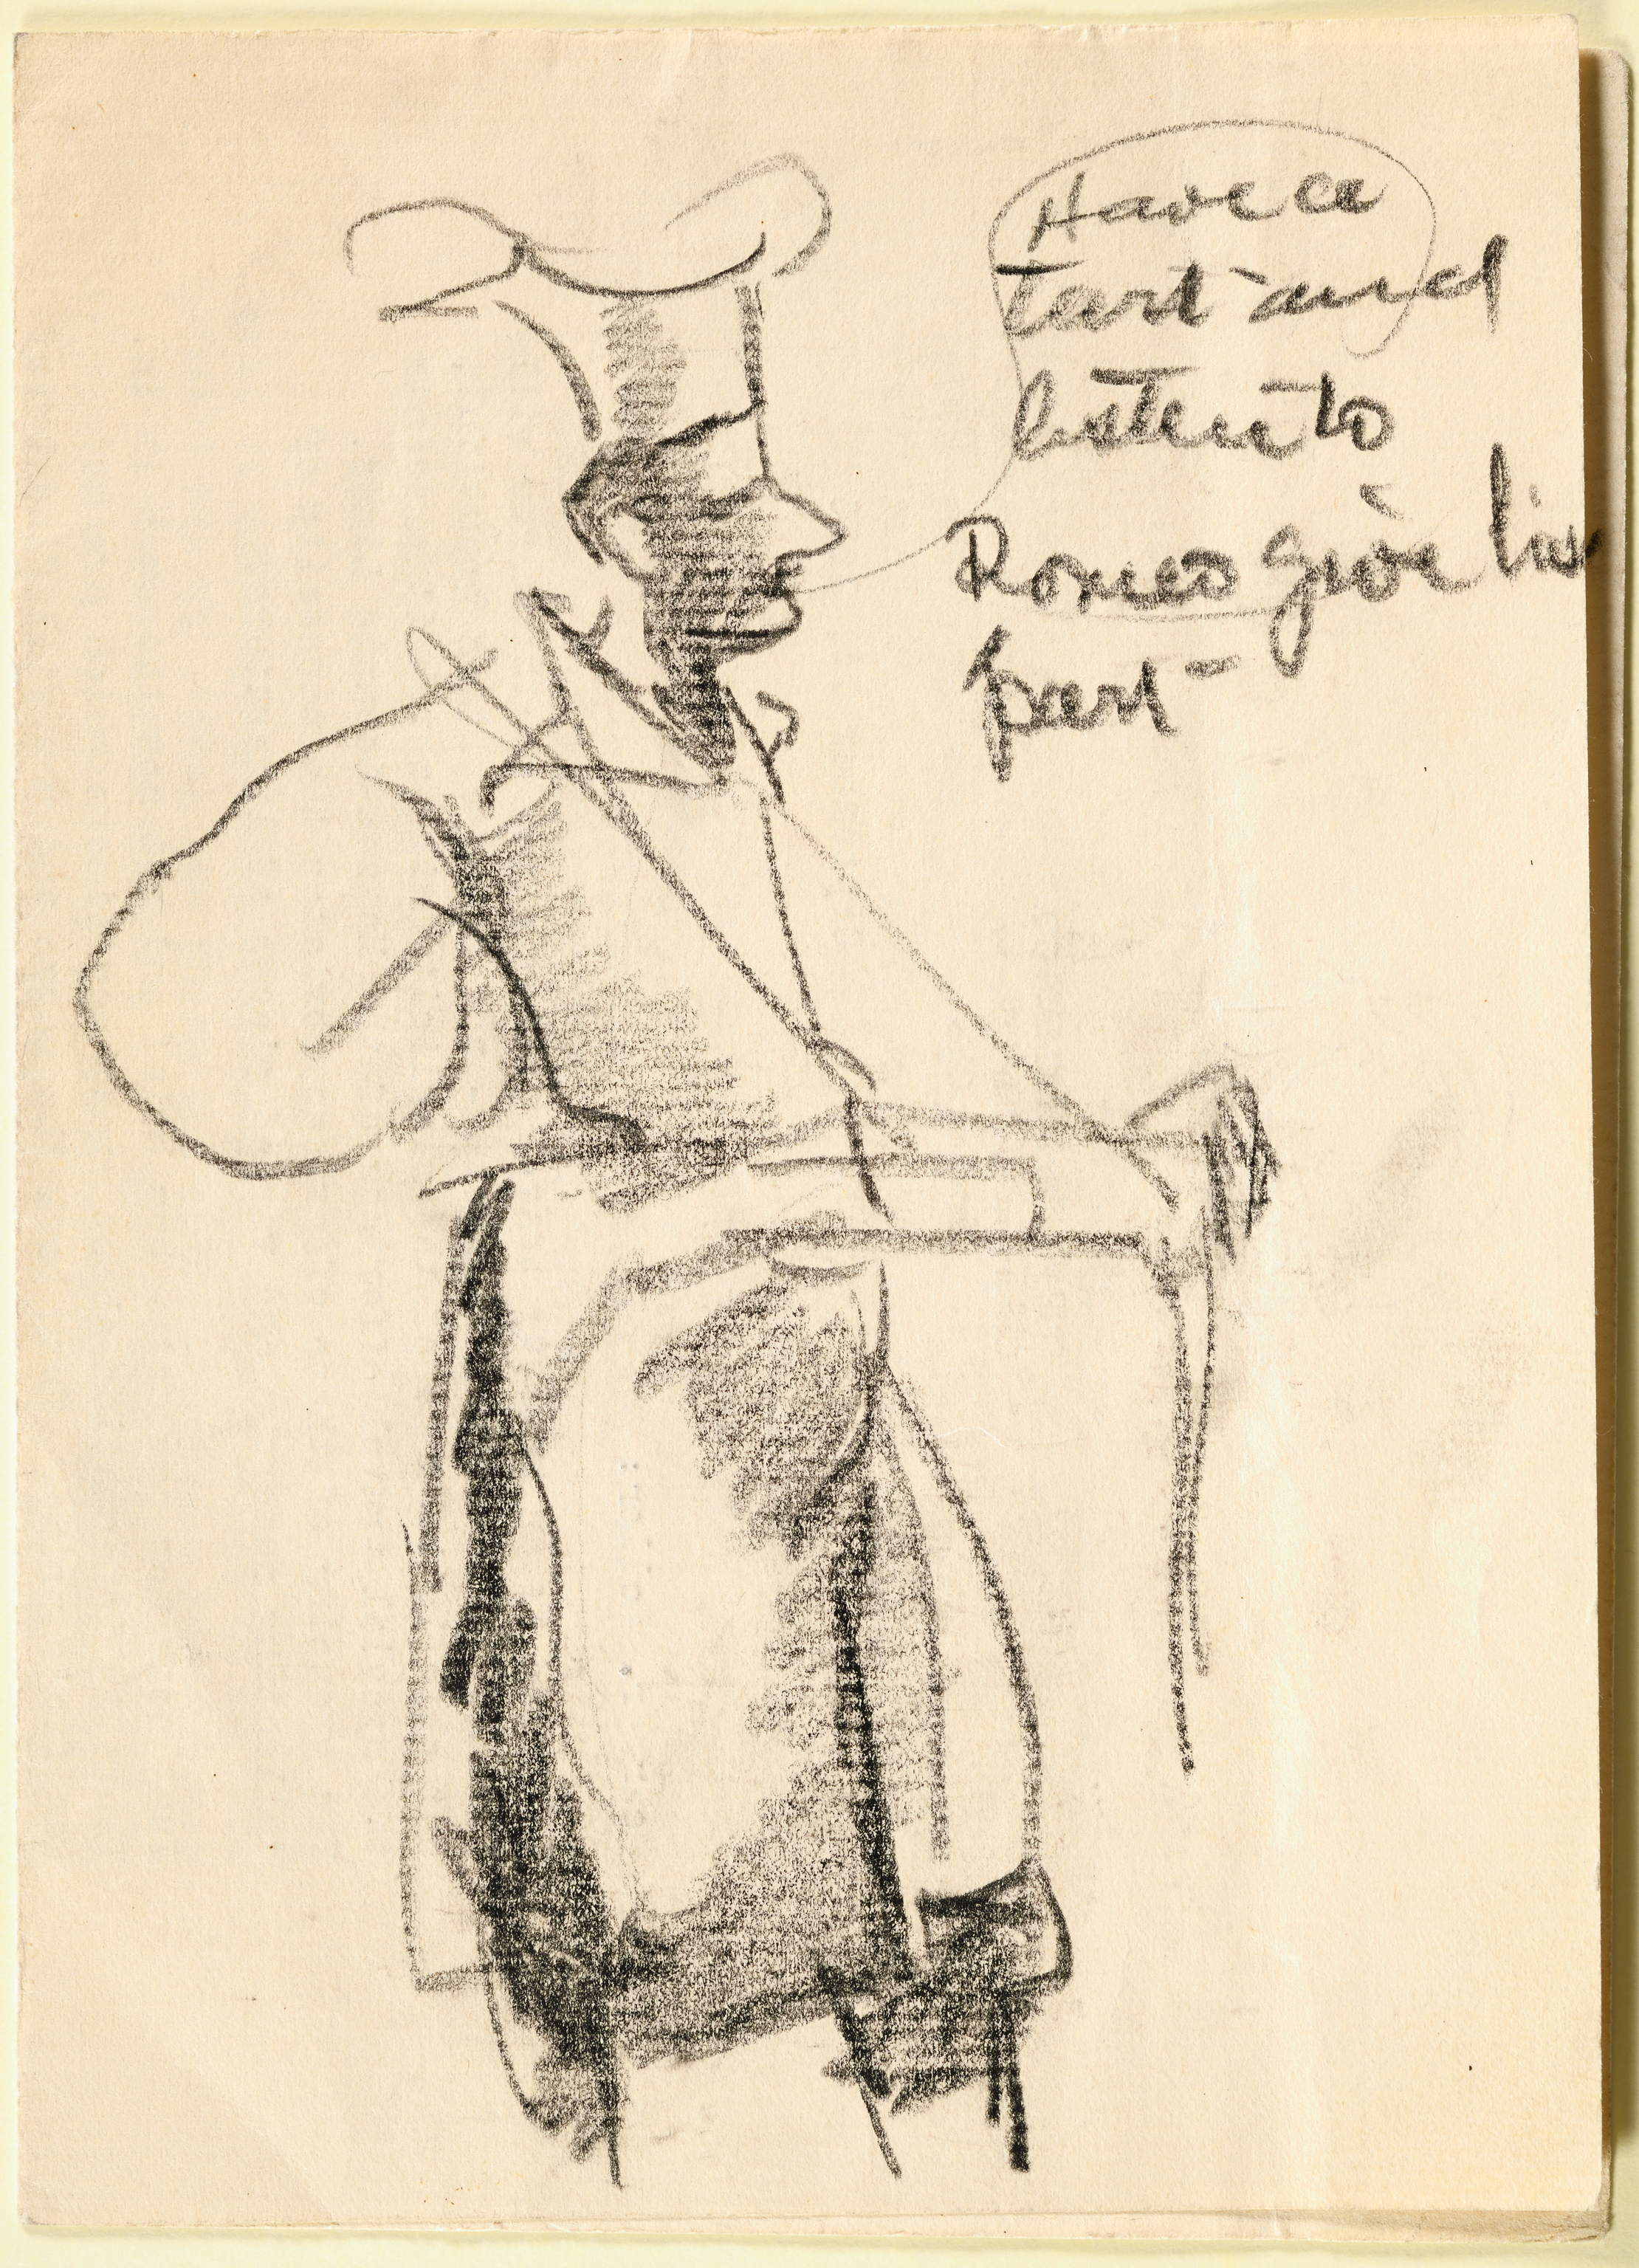 Have a
tart and
listen to
Romeo give his
part-